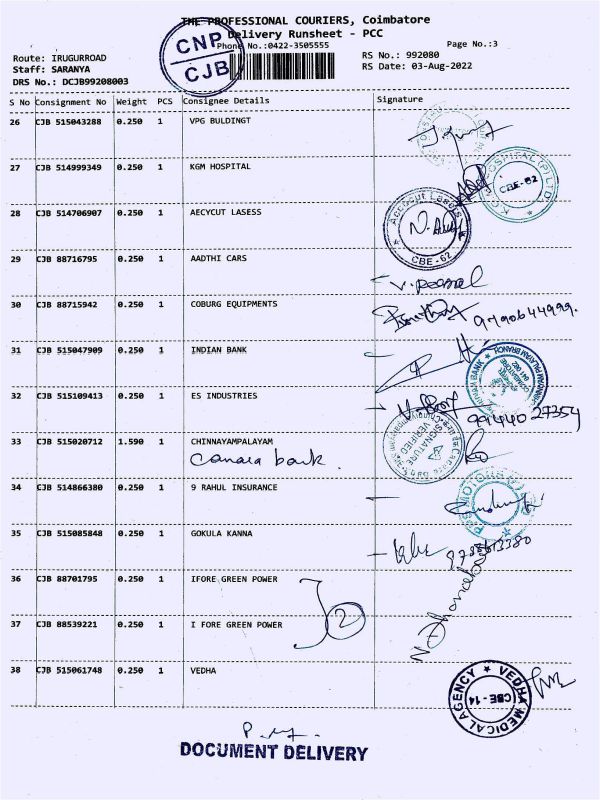 THE PROFESSIONAL COURIERS, Coimbatore
Delivery Runsheet - PCC
Phone No.:0422-3505555
Page No.:3
CNP
CJB
Route: IRUGURROAD
Staff: SARANYA
DRS No.: DCJB99208003
RS No.: 992080
RS Date: 03-Aug-2022
S No Consignment No Weight PCS Consignee Details Signature
26 CJB 515043288 0.250 1 VPG BULDINGT
27 CJB 514999349 0.250 1 KGM HOSPITAL
CBE-62
28 CJB 514706907 0.250 1 AECYCUT LASESS
Accucut Lasers
CBE-62
29 CJB 88716795 0.250 1 AADTHI CARS
30 CJB 88715942 0.250 1 COBURG EQUIPMENTS
9790644999.
31 CJB 515047909 0.250 1 INDIAN BANK
32 CJB 515109413 0.250 1 ES INDUSTRIES
9944027354
33 CJB 515020712 1.590 1 CHINNAYAMPALAYAM
Canara bank.
SIGNATURE
VERIFIED
34 CJB 514866380 0.250 1 9 RAHUL INSURANCE
35 CJB 515085848 0.250 1 GOKULA KANNA
36 CJB 88701795 0.250 1 IFORE GREEN POWER
2
37 CJB 88539221 0.250 1 I FORE GREEN POWER
38 CJB 515061748 0.250 1 VEDHA
VEDHA MEDICAL AGENCY
CBE-14
DOCUMENT DELIVERY